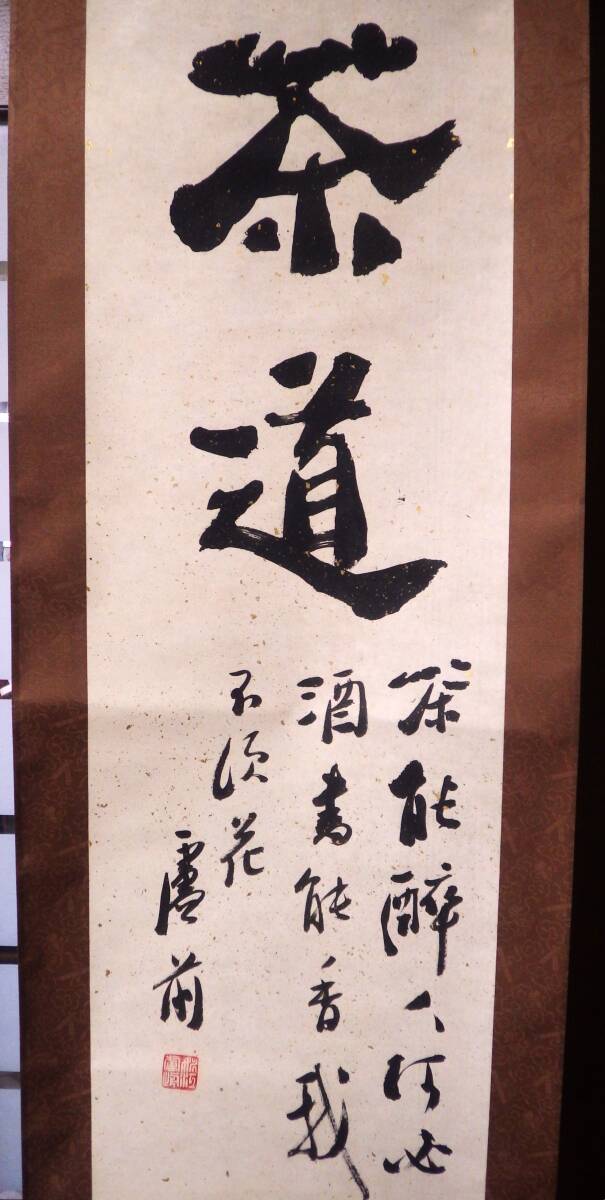 茶道
茶能醉人何必
酒書能香我
不須花